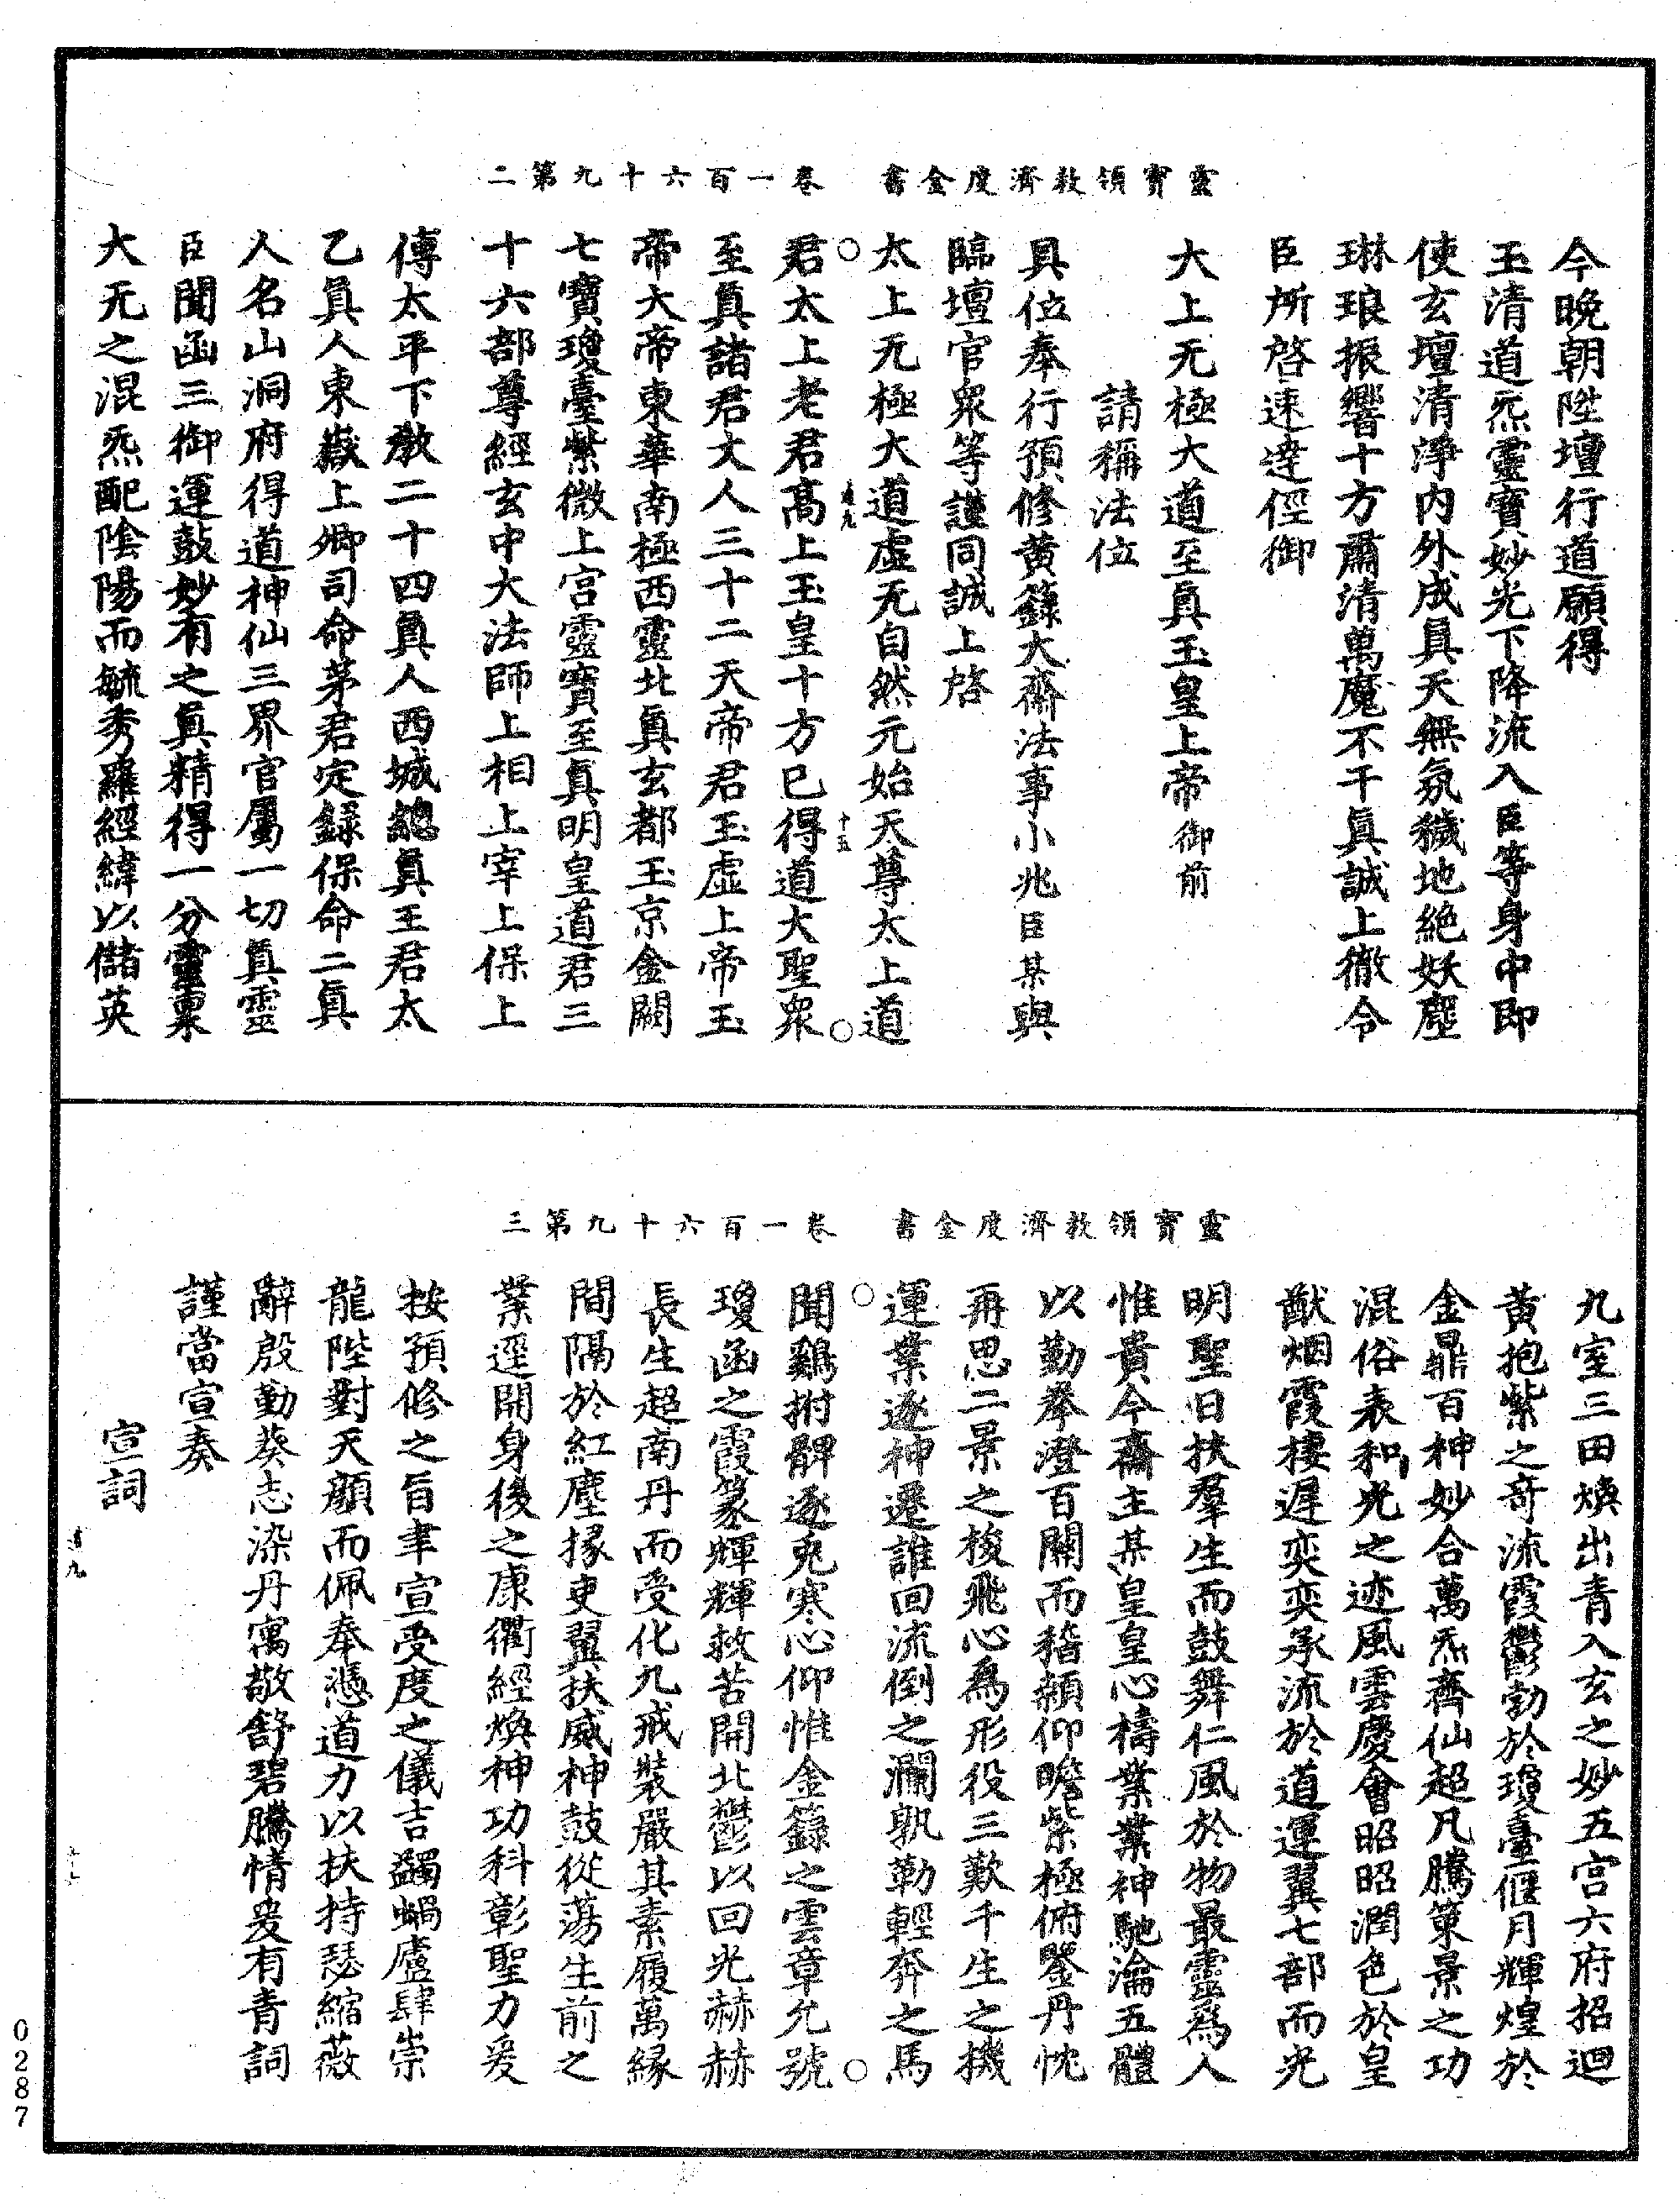 靈寶領教濟度金書　卷一百六十九第二
今晚朝陞壇行道願得
玉清道炁靈寶妙光下降流入臣等身中即
使玄壇清淨內外成真天無氛穢地絕妖塵
琳琅振響十方肅清萬魔不干真誠上徹令
臣所啓速達徑御
大上无極大道至真玉皇上帝御前
請稱法位
具位奉行預修黃籙大齋法事小兆臣某與
臨壇官衆等謹同誠上啓
太上无極大道虛无自然元始天尊太上道
道九　十五
君太上老君高上玉皇十方已得道大聖衆
至真諸君丈人三十二天帝君玉虛上帝玉
帝大帝東華南極西靈北真玄都玉京金闕
七寶瓊臺紫微上宮靈寶至真明皇道君三
十六部尊經玄中大法師上相上宰上保上
傳太平下教二十四真人西城總真王君太
乙真人東嶽上卿司命茅君定錄保命二真
人名山洞府得道神仙三界官屬一切真靈
臣聞函三御運鼓妙有之真精得一分靈稟
大无之混炁配陰陽而毓秀羅經緯以儲英
靈寶領教濟度金書　卷一百六十九第三
九室三田煥出青入玄之妙五宮六府招迴
黃抱紫之奇流霞鬱勃於瓊臺偃月輝煌於
金鼎百神妙合萬炁齊仙超凡騰策景之功
混俗表和光之迹風雲慶會昭昭潤色於皇
猷烟霞棲遲奕奕承流於道運翼七部而光
明聖日扶羣生而鼓舞仁風於物最靈爲人
惟貴今齋主某皇皇心禱業業神馳瀹五體
以勤拳澄百關而稽顙仰瞻紫極俯瑩丹忱
再思二景之梭飛心爲形役三歎千生之機
運業逐神遷誰回流倒之瀾孰勒輕奔之馬
聞鷄拊髀逐兎寒心仰惟金籙之雲章允號
瓊函之霞篆輝輝救苦開北鬱以回光赫赫
長生超南丹而受化九戒裝嚴其素履萬緣
間隔於紅塵掾吏翼扶威神鼓從蕩生前之
業逕開身後之康衢經煥神功科彰聖力爰
按預修之旨聿宣受度之儀吉蠲蝸廬肆崇
龍陛對天顏而佩奉憑道力以扶持瑟縮薇
辭殷勤葵志染丹寓敬舒碧騰情爰有青詞
謹當宣奏
宣詞
道九
0287